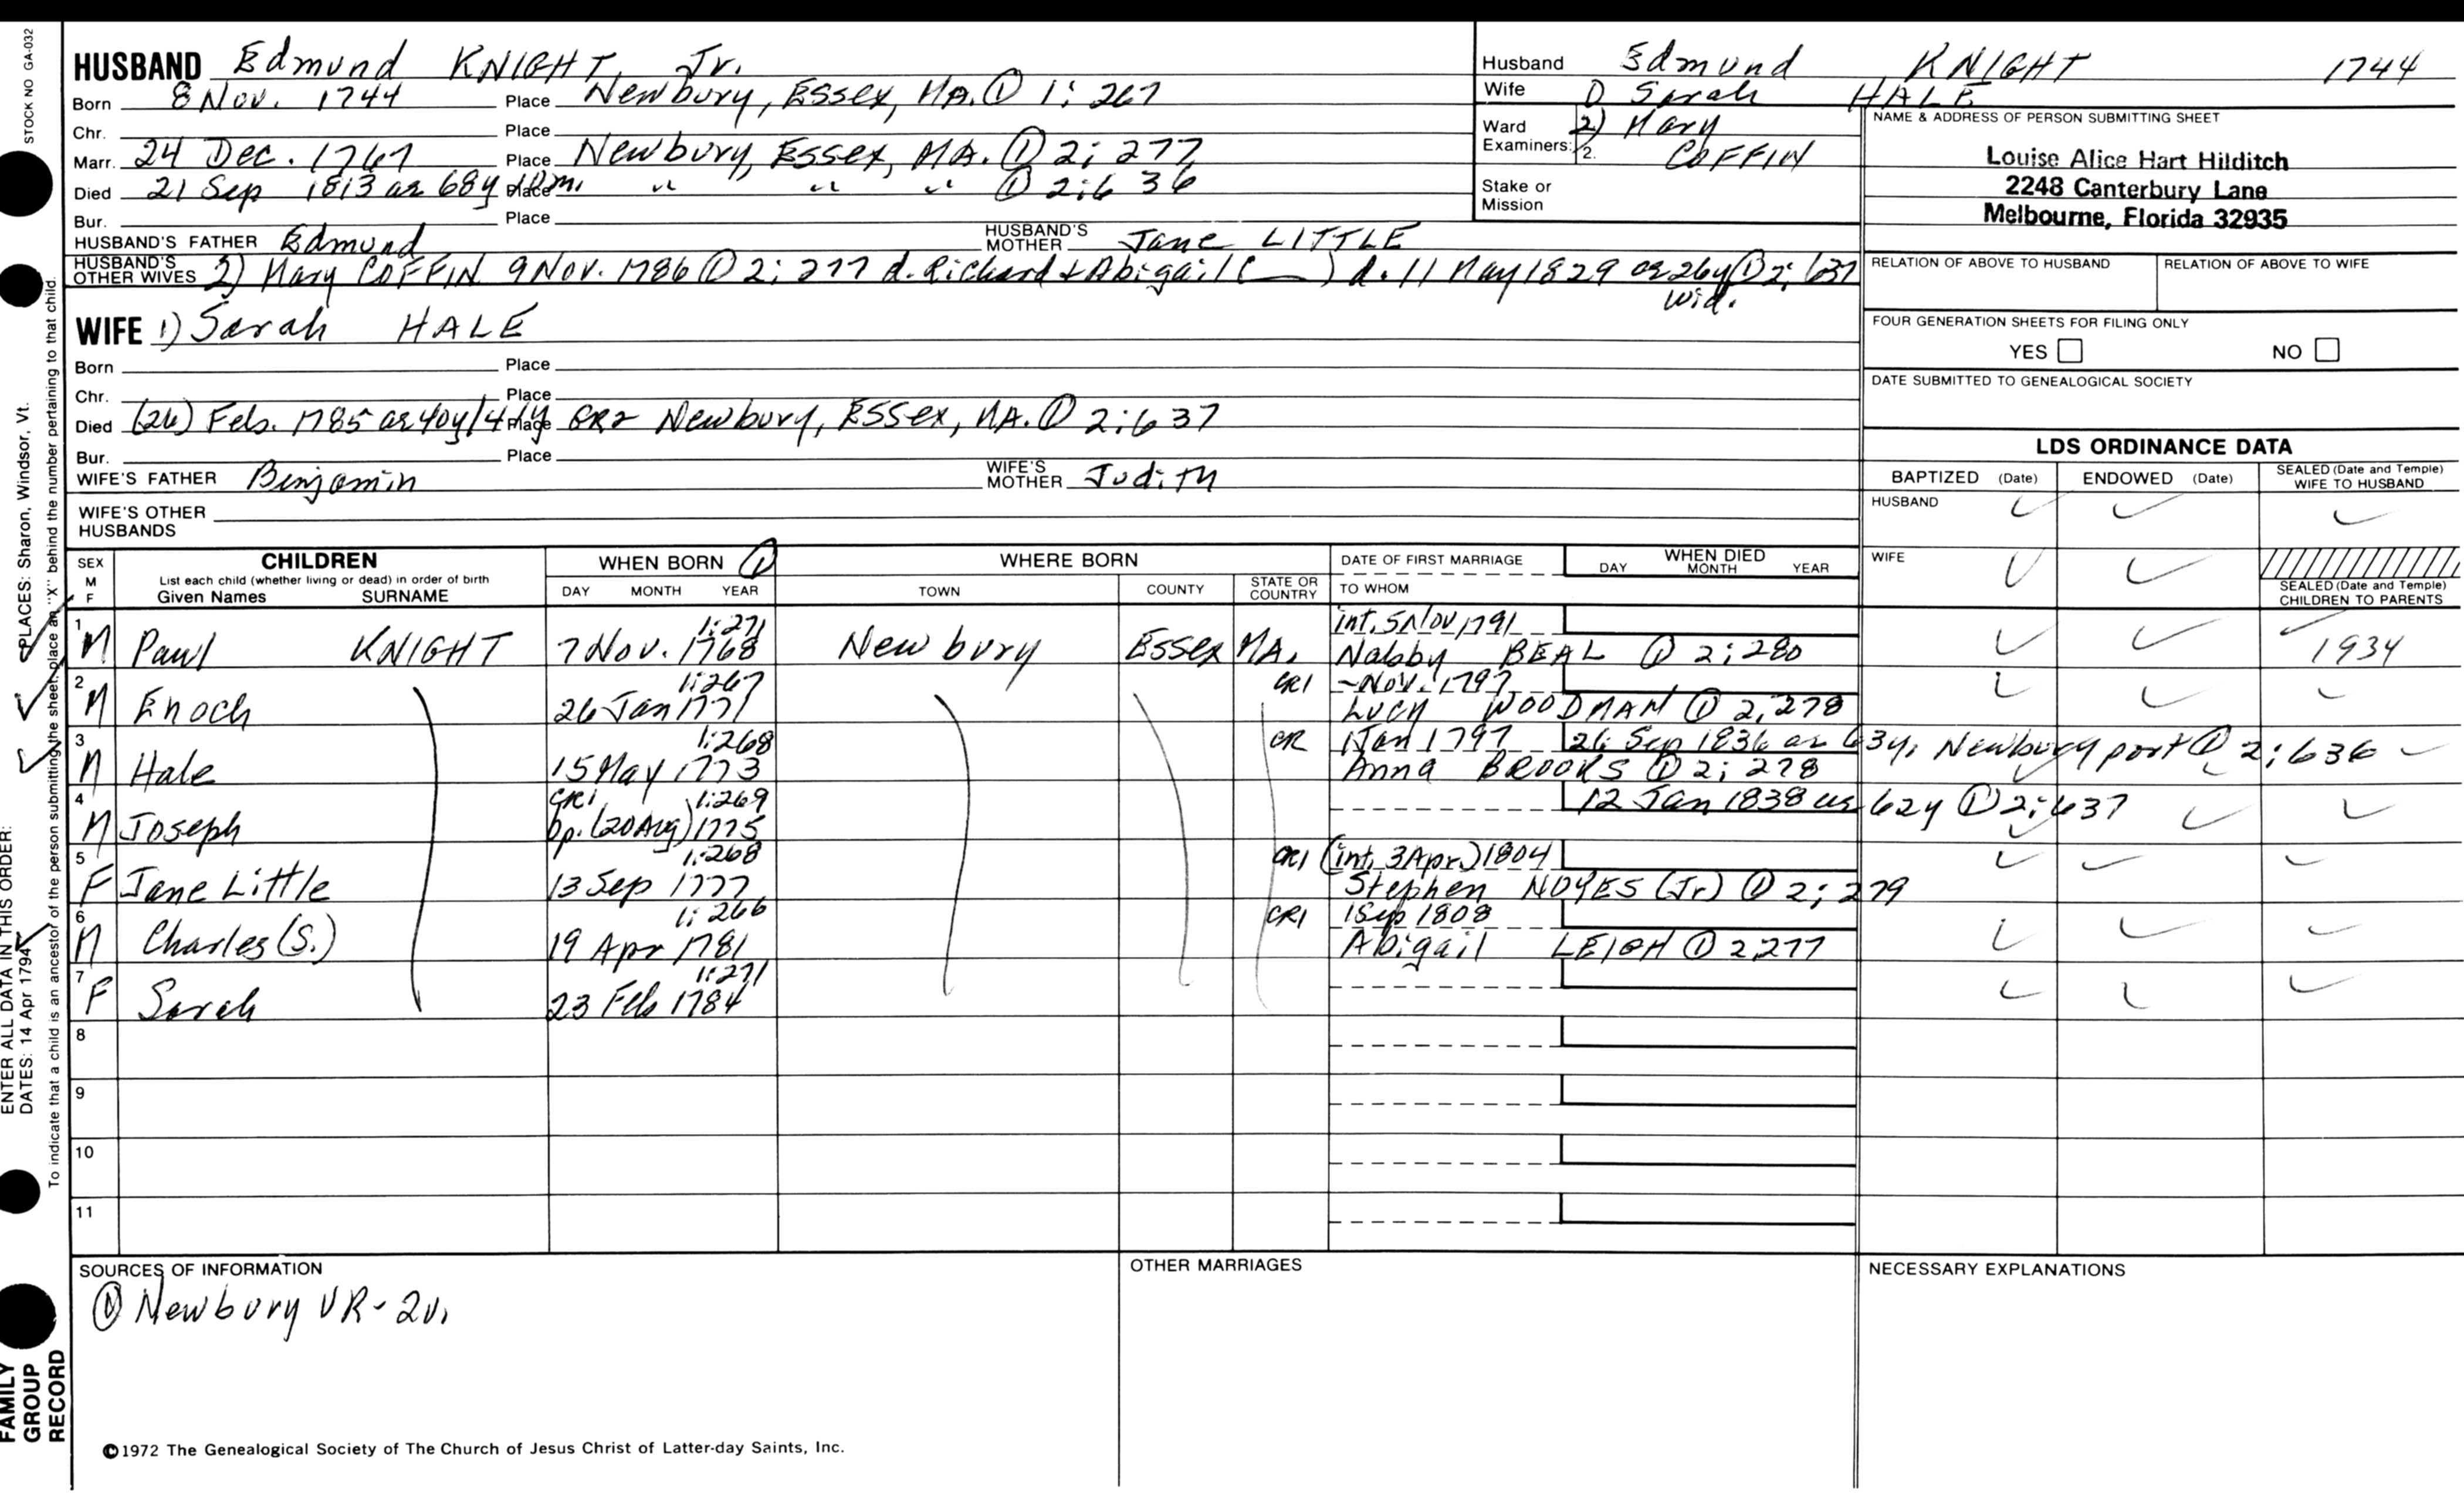 STOCK NO GA-032
HUSBAND Edmund KNIGHT, Jr.
Born 8 Nov. 1744 Place Newbury, Essex, MA. ① 1: 267
Chr. Place
Marr. 24 Dec. 1767 Place Newbury, Essex, MA. ① 2: 277
Died 21 Sep 1813 ae 68y 10m. Place " " " ① 2:636
Bur. Place
HUSBAND'S FATHER Edmund HUSBAND'S MOTHER Jane LITTLE
HUSBAND'S OTHER WIVES 2) Mary COFFIN 9 Nov. 1786 ① 2: 277 d. Richard & Abigail ( ) d. 11 May 1829 ae 26y ① 2: 637
wid.
Husband Edmund KNIGHT 1744
Wife 1) Sarah HALE
Ward 2) Mary
Examiners: 2. COFFIN
Stake or Mission
NAME & ADDRESS OF PERSON SUBMITTING SHEET
Louise Alice Hart Hilditch
2248 Canterbury Lane
Melbourne, Florida 32935
RELATION OF ABOVE TO HUSBAND RELATION OF ABOVE TO WIFE
FOUR GENERATION SHEETS FOR FILING ONLY
YES NO
DATE SUBMITTED TO GENEALOGICAL SOCIETY
WIFE 1) Sarah HALE
Born Place
Chr. Place
Died (26) Feb. 1785 ae 40y 14 dy Place GR2 Newbury, Essex, MA. ① 2:637
Bur. Place
WIFE'S FATHER Benjamin WIFE'S MOTHER Judith
WIFE'S OTHER HUSBANDS
LDS ORDINANCE DATA
BAPTIZED (Date) ENDOWED (Date) SEALED (Date and Temple) WIFE TO HUSBAND
HUSBAND ✓ ✓ ✓
WIFE ✓ ✓
SEALED (Date and Temple) CHILDREN TO PARENTS
SEX M F CHILDREN WHEN BORN ① WHERE BORN DATE OF FIRST MARRIAGE WHEN DIED
List each child (whether living or dead) in order of birth
Given Names SURNAME DAY MONTH YEAR TOWN COUNTY STATE OR COUNTRY TO WHOM DAY MONTH YEAR
1:271 int. 5 Nov 1791
1 M Paul KNIGHT 7 Nov. 1768 Newbury Essex MA. Nabby BEAL ① 2: 280 ✓ ✓ ✓ 1934
1:267 CR1 -Nov. 1797
2 M Enoch 26 Jan 1771 Lucy WOODMAN ① 2, 278 ✓ ✓ ✓
1:268 CR 1 Jan 1797 26 Sep 1836 ae 63y, Newburyport ① 2:636 ✓
3 M Hale 15 May 1773 Anna BROOKS ① 2: 278 ✓ ✓
CR1 1:269 12 Jan 1838 ae 62y ① 2:637
4 M Joseph bp. (20 Aug) 1775 ✓ ✓ ✓
1:268 CR1 (int. 3 Apr.) 1804
5 F Jane Little 13 Sep 1777 Stephen NOYES (Jr) ① 2: 279 ✓ ✓ ✓
1: 266 CR1 1 Sep 1808
6 M Charles (S.) 19 Apr 1781 Abigail LEIGH ① 2,277 ✓ ✓ ✓
1:271
7 F Sarah 23 Feb 1784 ✓ ✓ ✓
8
9
10
11
SOURCES OF INFORMATION
① Newbury VR - 2v.
OTHER MARRIAGES
NECESSARY EXPLANATIONS
©1972 The Genealogical Society of The Church of Jesus Christ of Latter-day Saints, Inc.
FAMILY GROUP RECORD
ENTER ALL DATA IN THIS ORDER:
DATES: 14 Apr 1794 PLACES: Sharon, Windsor, Vt.
To indicate that a child is an ancestor of the person submitting the sheet, place an "X" behind the number pertaining to that child.